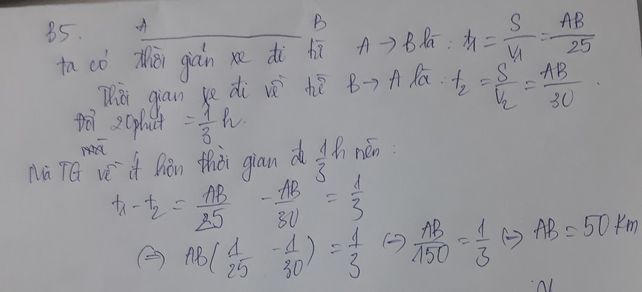 B5. A B
ta có thời gian xe đi từ A → B là : t₁ = S/V₁ = AB/25
Thời gian xe đi về từ B → A là : t₂ = S/V₂ = AB/30.
Đổi 20 phút = 1/3 h.
mà
Mà TG về ít hơn thời gian đi 1/3 h nên :
t₁ - t₂ = AB/25 - AB/30 = 1/3
⇔ AB(1/25 - 1/30) = 1/3 ⇔ AB/150 = 1/3 ⇔ AB = 50 Km